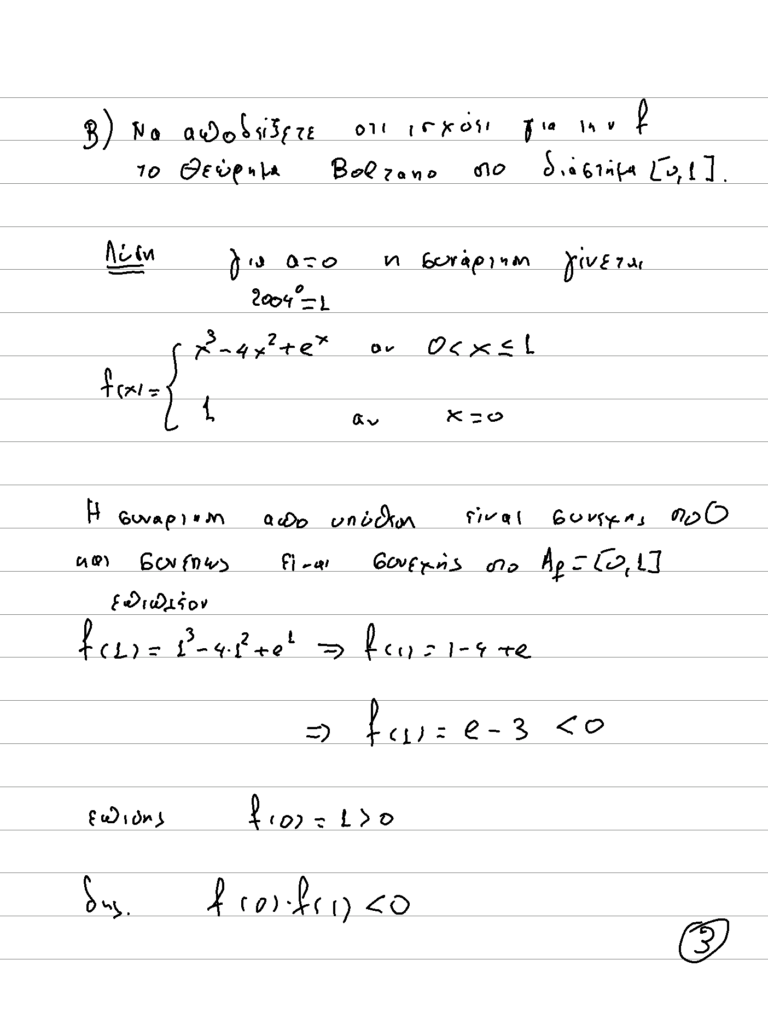 Β) Να αποδείξετε οτι ισχύει για την f
το Θεώρημα Bolzano στο διάστημα [0,1].
Λύση για α=0 η συνάρτηση γίνεται
2004⁰=1
f(x)= { x³-4x²+eˣ αν 0<x≤1
1 αν x=0
Η συναρτηση απο υπόθεση είναι συνεχης στο 0
και συνεπως είναι συνεχής στο A_f=[0,1]
επιπλέον
f(1)=1³-4·1²+e¹ ⇒ f(1)=1-4+e
⇒ f(1)=e-3 <0
επισης f(0)=1>0
δης. f(0)·f(1)<0
3